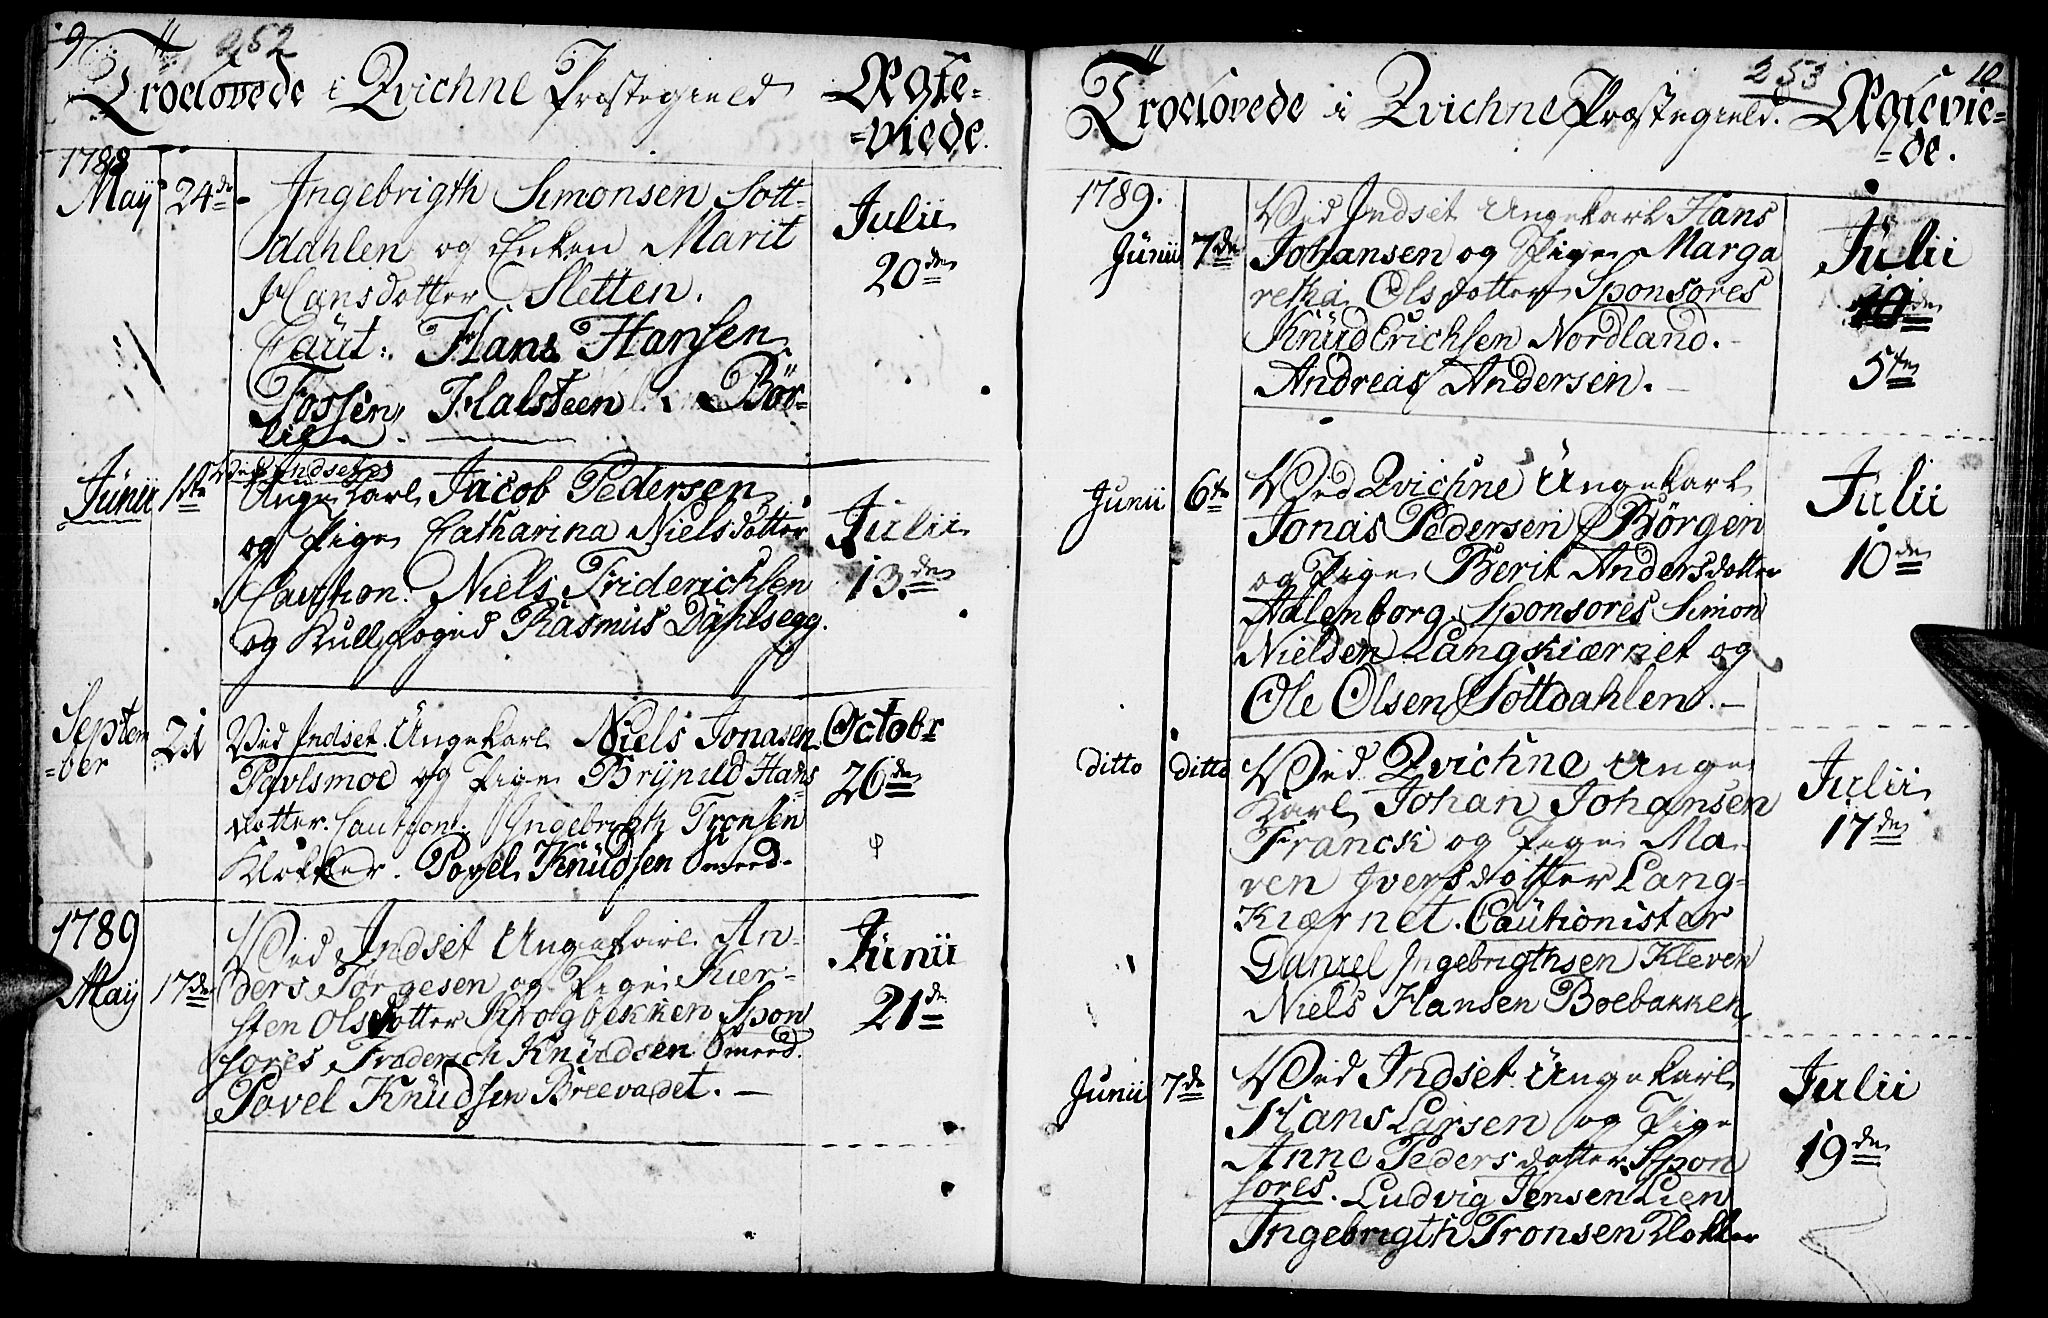 9 252
Troelovede i Qvichne Præstegield Ægte-
=viede.
1788
May 24de Ingebrigth Simonsen Sott-
dahlen og Enken Marit
Hansdotter Sletten.
Caut: Hans Hansen
Fossen, Halsteen Bör-
lien.
Julii
20de
Junii 1ste Ved Indset
Ungekarl Jacob Pedersen
og Pige Catharina Nielsdotter
Caution: Niels Friderichsen
og Kullfoged Rasmus Dahlsegg.
Julii
13de
Septem
=ber 21 Ved Indset. Ungekarl Niels Jonasen
Povlsmoe og Pige Brynild Hans
dotter. Caution: Ingebrigth Tronsen
Klokker. Povel Knudsen
October
26de
1789
May 17de Ved Indset Ungekarl An-
ders Törgesen og Pige Kier-
sten Olsdotter Krogbekken Spon
sores Fraderich Knudsen
Povel Knudsen Breevadet.
Junii
21de
253 10
Troelovede i Qvichne Præstegield. Ægtevie-
=de.
1789.
Junii 7de Ved Indset Ungekarl Hans
Johansen og Pige Marga
retha Olsdotter Sponsores
Knud Erichsen Nordland.
Andreas Andersen.
Julii
5te
Junii 6te Ved Qvichne Ungekarl
Jonas Pedersen Börgen
og Pige Berit Andersdotter
Aalenborg. Sponsores Simon
Nielsen Langkiærnet og
Ole Olsen Sottdahlen.
Julii
10de
ditto ditto Ved Qvichne Unge
Karl Johan Johansen
Franck og Pige Ma
ren Iversdotter Lang-
kiærnet. Cautionister
Daniel Ingebrigthsen Kleven
Niels Hansen Boebakken
Julii
17de
Junii 7de Ved Indset Ungekarl
Hans Larsen og Pige
Anne Pedersdotter Spon
sores. Ludvig Jensen Lien
Ingebrigth Tronsen Klokker
Julii
19de